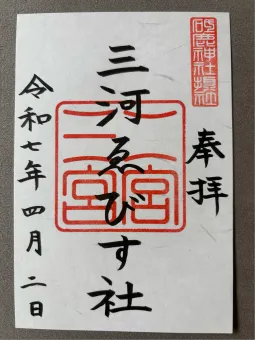 奉拝
砥鹿神社摂社
三河ゑびす社
三河一宮
令和七年四月二日